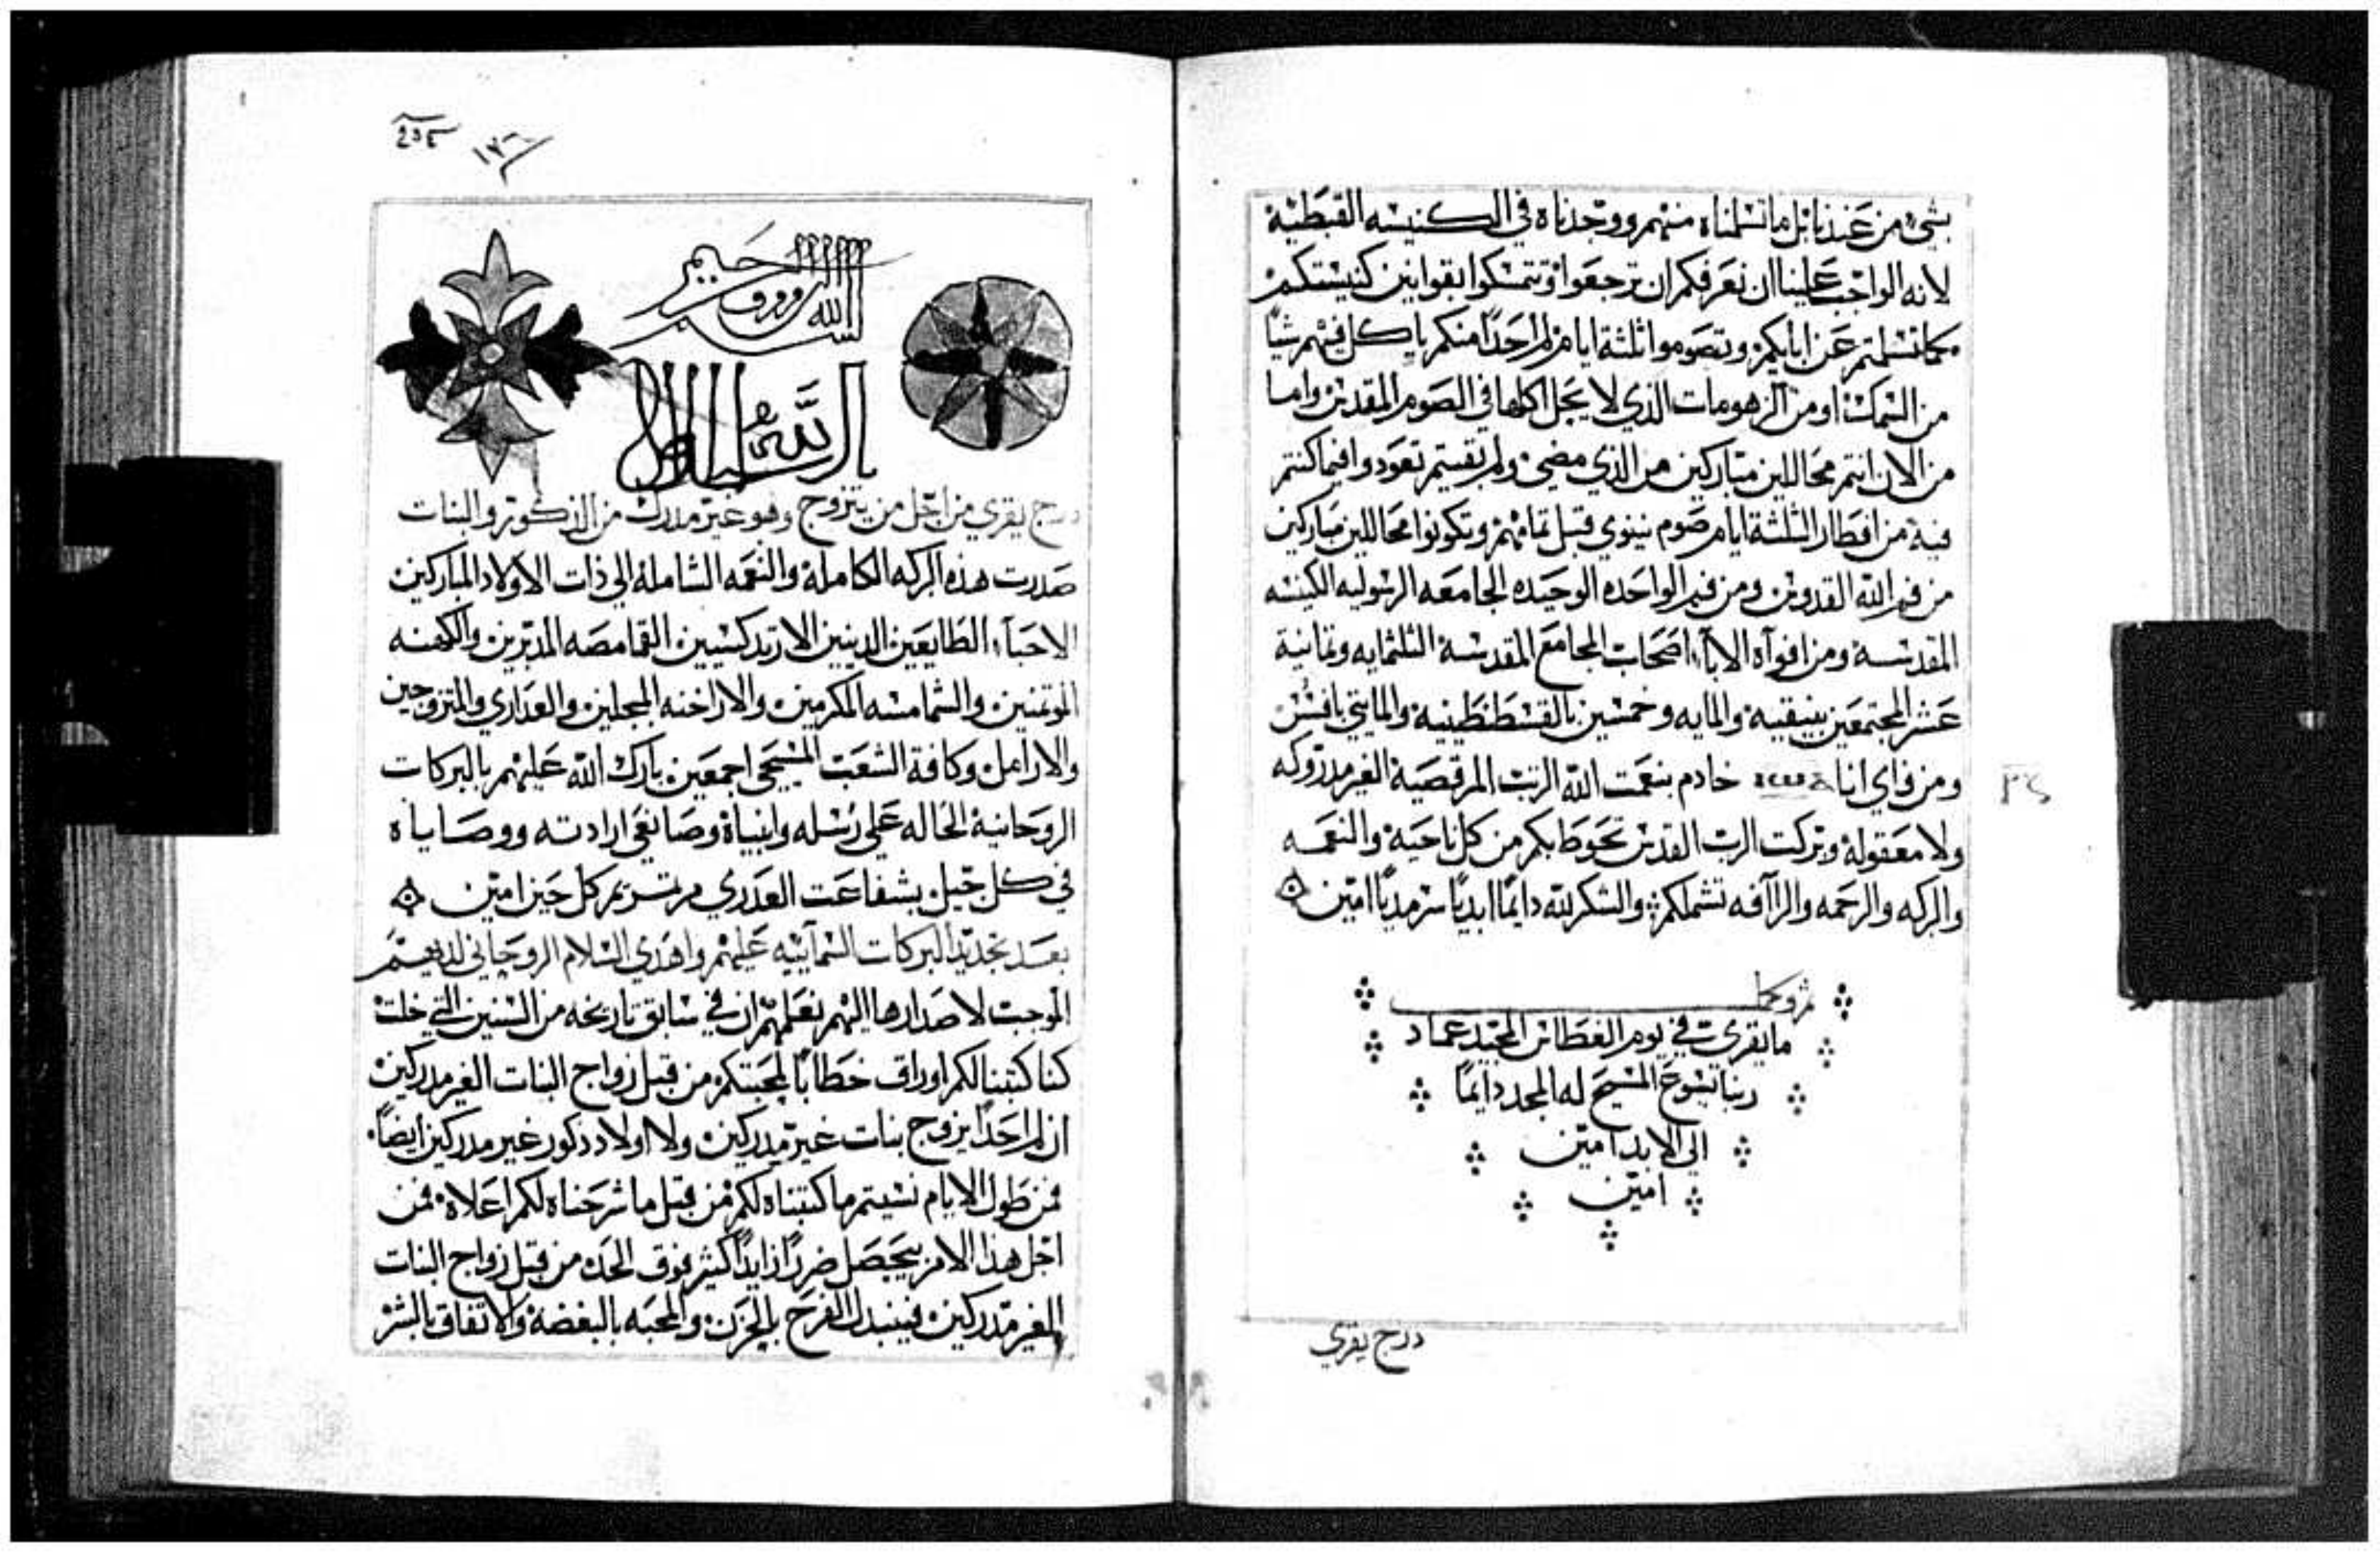 بشي من عندنا بل ما تسلمناه منهم ووجدناه في الكنيسه القبطية
لانه الواجب علينا ان نعرفكم ان ترجعوا وتتمسكوا بقوانين كنيستكم
كما تسلمتم عن ابايكم وتصوموا ثلثة ايام لم احدًا منكم ياكل فيهم شيًا
من السمك او من الزهومات الذي لا يحل اكلها في الصوم المقدس واما
من الان انتم محاللين مباركين من الذي مضي ولم بقيتم تعودوا فيما كنتم
فيه من افطار الثلثة ايام صوم نينوي قبل تمامهم وتكونوا محاللين مباركين
من فم الله القدوس ومن فم الواحده الوحيده الجامعه الرسوليه الكنيسه
المقدسة ومن افواه الاباء اصحاب المجامع المقدسة الثلثمايه وثمانية
عشر المجتمعين بنيقية والمايه وخمسين بالقسطنطينيه والمايتي بافسس
ومن فاي انا خادم بنعمت الله الرتب المرقصية الغير مدروكه
ولا معقولة وبركت الرب القدوس تحوط بكم من كل ناحية والنعمه
والبركه والرحمه والراافه تشملكم والشكر لله دايمًا ابديًا سرمديًا امين
ما يقري في يوم الغطاس المجيد عماد
ربنا يسوع المسيح له المجد دايمًا
الي الابد امين
امين
درج يقري
١٧٦
بسم الله الرووف الرحيم
درج يقري من اجل من يتزوج وهو غير مدرك من الذكور والبنات
صدرت هذه البركه الكاملة والنعمه الشاملة الي ذات الاولاد المباركين
الاحباء الطايعين الدينين الارتدكسيين القمامصه المدبرين والكهنه
الموتمنين والشمامسه المكرمين والاراخنه المبجلين والعداري والمتزوجين
والارامل وكافة الشعب المسيحي اجمعين بارك الله عليهم بالبركات
الروحانية الحاله علي رسله وانبياة وصانعي ارادته ووصاياه
في كل جيل بشفاعت العدري مرتمريم كل حين امين
بعد تجديد البركات السمآييه عليهم واهدي السلام الروحاني لديهم
الموجب لاصدارها اليهم نعلمهم ان في سابق تاريخه من السنين التي خلت
كنا كتبنا لكم اوراق خطابًا لمحبتكم من قبل زواج البنات الغير مدركين
ان لم احدًا يزوج بنات غير مدركين ولا اولاد ذكور غير مدركين ايضًا
فمن طول الايام نسيتم ما كتبناه لكم من قبل ما شرحناه لكم اعلاه فمن
اجل هذا الامر يحصل ضررًا زايدًا كثير فوق الحد من قبل زواج البنات
الغير مدركين فينبدل الفرح بالحزن والمحبه بالبغضة والاتفاق بالشر